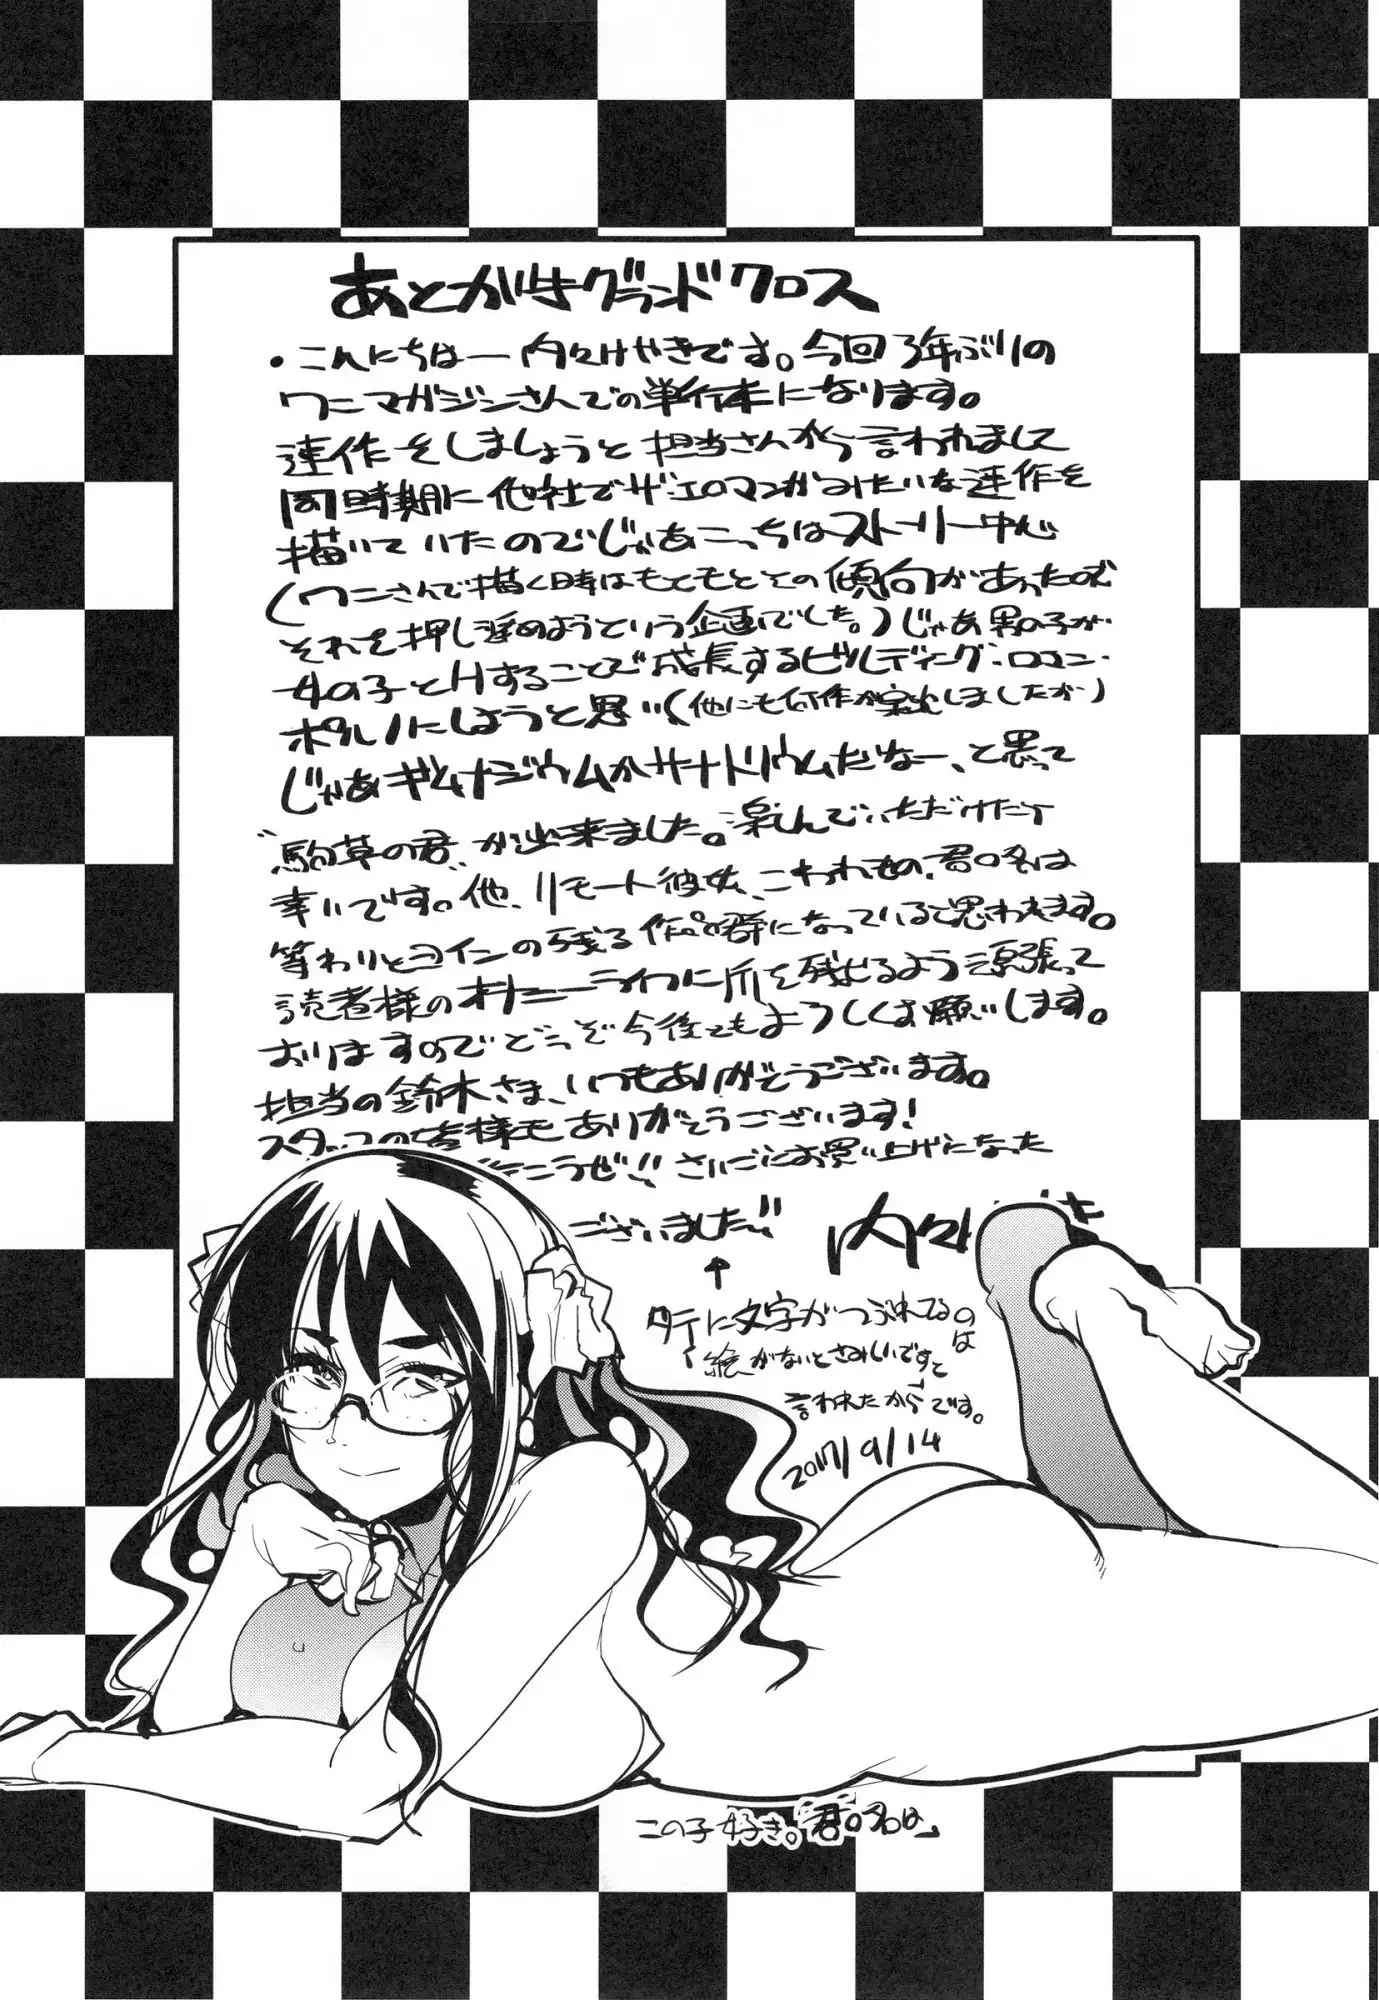 あとがきグランドクロス
・こんにちはー内々けやきです。今回3年ぶりの
ワニマガジンさんでの単行本になります。
連作をしましょうと担当さんから言われまして
同時期に他社でザ・エロマンガみたいな連作を
描いていたのでじゃあこっちはストーリー中心
(ワニさんで描く時はもともとその傾向があったので
それを押し進めようという企画でした。)じゃあ男の子が
女の子とHすることで成長するビルディング・ロマン・
ポルノにしようと思い(他にも何作か
しましたが)
じゃあギムナジウムかサナトリウムだなー、と思って
"駒草の君"が出来ました。楽しんでいただけたら
幸いです。他、リモート彼女、こわれもの、君の名は
等わりとヨインの残る作品群になっていると思われます。
読者様のオナニーライフに爪を残せるよう頑張って
おりますのでどうぞ今後ともよろしくお願いします。
担当の鈴木さま、いつもありがとうございます。
スタッフの皆様もありがとうございます!
さいごにお買い上げになった
ございました!!
内々
↑
タテに文字がつぶれてるのは
絵がないとさみしいですと
言われたからです。
2017/9/14
この子好き。「君の名は」